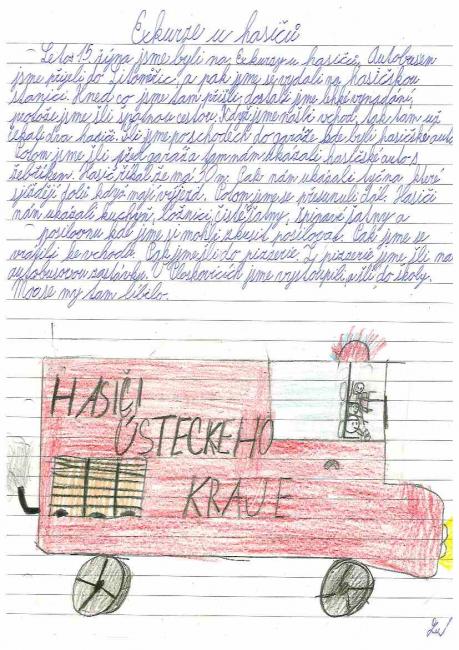 Exkurze u hasičů
Letos 15 října jsme byli na Exkurzy u hasičů. Autobusem
jsme přijeli do Litoměřic a pak jsme se vydali na hasičskou
stanici. Hned co jsme tam přišli dostali jsme
protože jsme šli špatnou cestou. Když jsme našli vchod, tak tam už
čekali dva hasiči. Šli jsme po schodech do garáže kde byli hasičské auta.
Potom jsme šli před garáž a tam nám ukázali hasičské auto s
žebříkem. Hasič říkal že má m. Pak nám ukázali tyč na které
sjíždějí dolů když mají výjezd. Potom jsme se přesunuli dál. Hasiči
nám ukázali kuchyň, ložnici, čisté šatny, špinavé šatny a
posilovnu kde jsme si mohli zkusit posilovat. Pak jsme se
vrátili ke vchodu. Pak jsme šli do pizzerie. Z pizzerie jsme šli na
autobusovou zastávku. V Ploskovicích jsme vystoupili a šli do školy.
Moc se mi tam líbilo.
HASIČI
ÚSTECKEHO
KRAJE